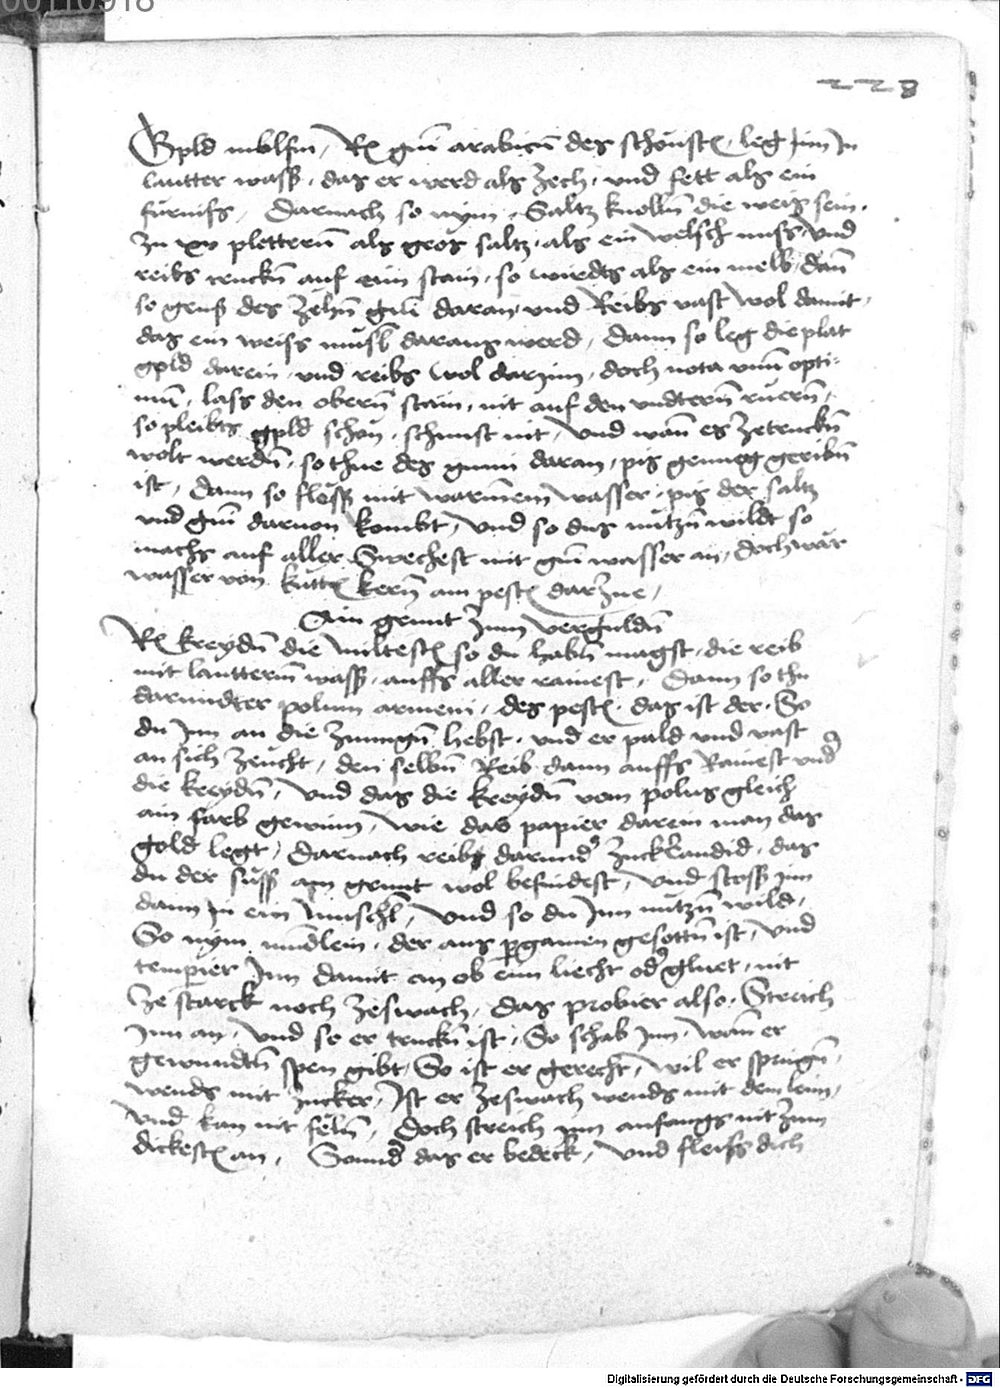 00110918
228
Gold maln, Rx gum̄i arabicū des schonstn̄, leg jnn jn
lautter wass̄, das er werd als zech, und fett als ein
furnifs, Darnach so nym, Saltz knolln̄ die weis sein,
zu xv plettern̄ als gros saltz, als ein welsch nuss, und
reibs truckn̄ auf eim stain, so wirdts als ein melb, dan̄
so geuss des zehn̄ gum̄i daran, und Reibs vast wol damit,
das ein weiss muss daraus werd, Dann so leg die plat
gold darein, und reibs wol darjnn, doch nota vnū opti-
mū, lass den obern̄ stain, nit auf den undtern̄ ruern̄,
so pleibts gold schon, schmist nit, Und wan̄ es zetruckn̄
wolt werdn̄, so thue des gumi daran, pis genueg geribn̄
ist, Dann so flöss mit warmem wasser, pis der saltz
und gum̄i daruon kombt, Und so dus nutzn̄ wildt so
machs auf aller Swechest mit gum̄i wasser an, doch wär
wasser von kuttn̄ kern̄ am pestn̄ darzue,
Ain grunt zum vergüldn̄
Rx kreydn̄ die miltestn̄ so du habn̄ magst, die reib
mit lautterm̄ wass̄, auffs aller rainest, Dann so thu
darundter polum armeni, des pestn̄, das ist der, So
du jnn an die zunngn̄ hebst, und er pald und vast
an sich zeucht, den selbn̄ Reib dann auffs Rainest und̄
die kreydn̄, Und das die kreydn̄ vom polus gleich
ain farb gewinn, wie das papier darein man das
gold legt, Darnach reibs darund̄ zucker candid, das
du der suss am grunt wol befindest, Und stoss jnn
dann jn ein muschl̄, Und so du jnn nutzn̄ wild,
So nym, leimlein, der aus pergamen gesottn̄ ist, Und
temperier jnn damit an ob eim liecht od̄ gluet, nit
ze starck noch zeswach, Das probier also, Streich
jnn an, Und so er truckn̄ ist, So schab jnn, wan̄ er
gewundtn̄ spen gibt, So ist er gerecht, wil er springn̄,
wends mit zucker, Ist er zeswach wends mit dem leim,
Und kan nit feln̄, Doch streich jnn anfangs nit zum
dickestn̄ an, Sonnd̄ das er bedeck, Und fleiss dich
Digitalisierung gefördert durch die Deutsche Forschungsgemeinschaft - DFG